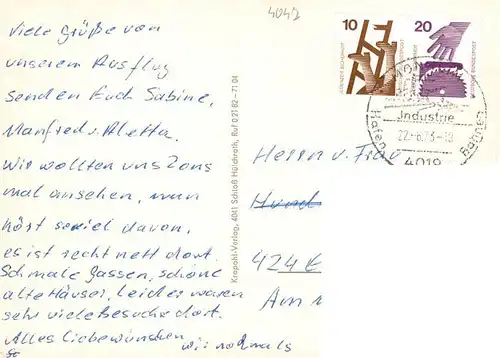 4042
Viele Grüße von
unserem Ausflug
senden Euch Sabine,
Manfred u. Aletta.
Wir wollten uns Zons
mal ansehen, man
hört soviel davon,
es ist recht nett dort.
Schmale Gassen, schöne
alte Häuser, leider waren
sehr viele Besucher dort.
Alles Liebe wünschen
wir nochmals
Krapohl-Verlag, 4041 Schloß Hülchrath, Ruf 0 21 82 - 71 04
10
20
DEUTSCHE BUNDESPOST
Industrie
Hafen
Bahnen
22.-6.73-18
4019
Herrn u. Frau
424
Am